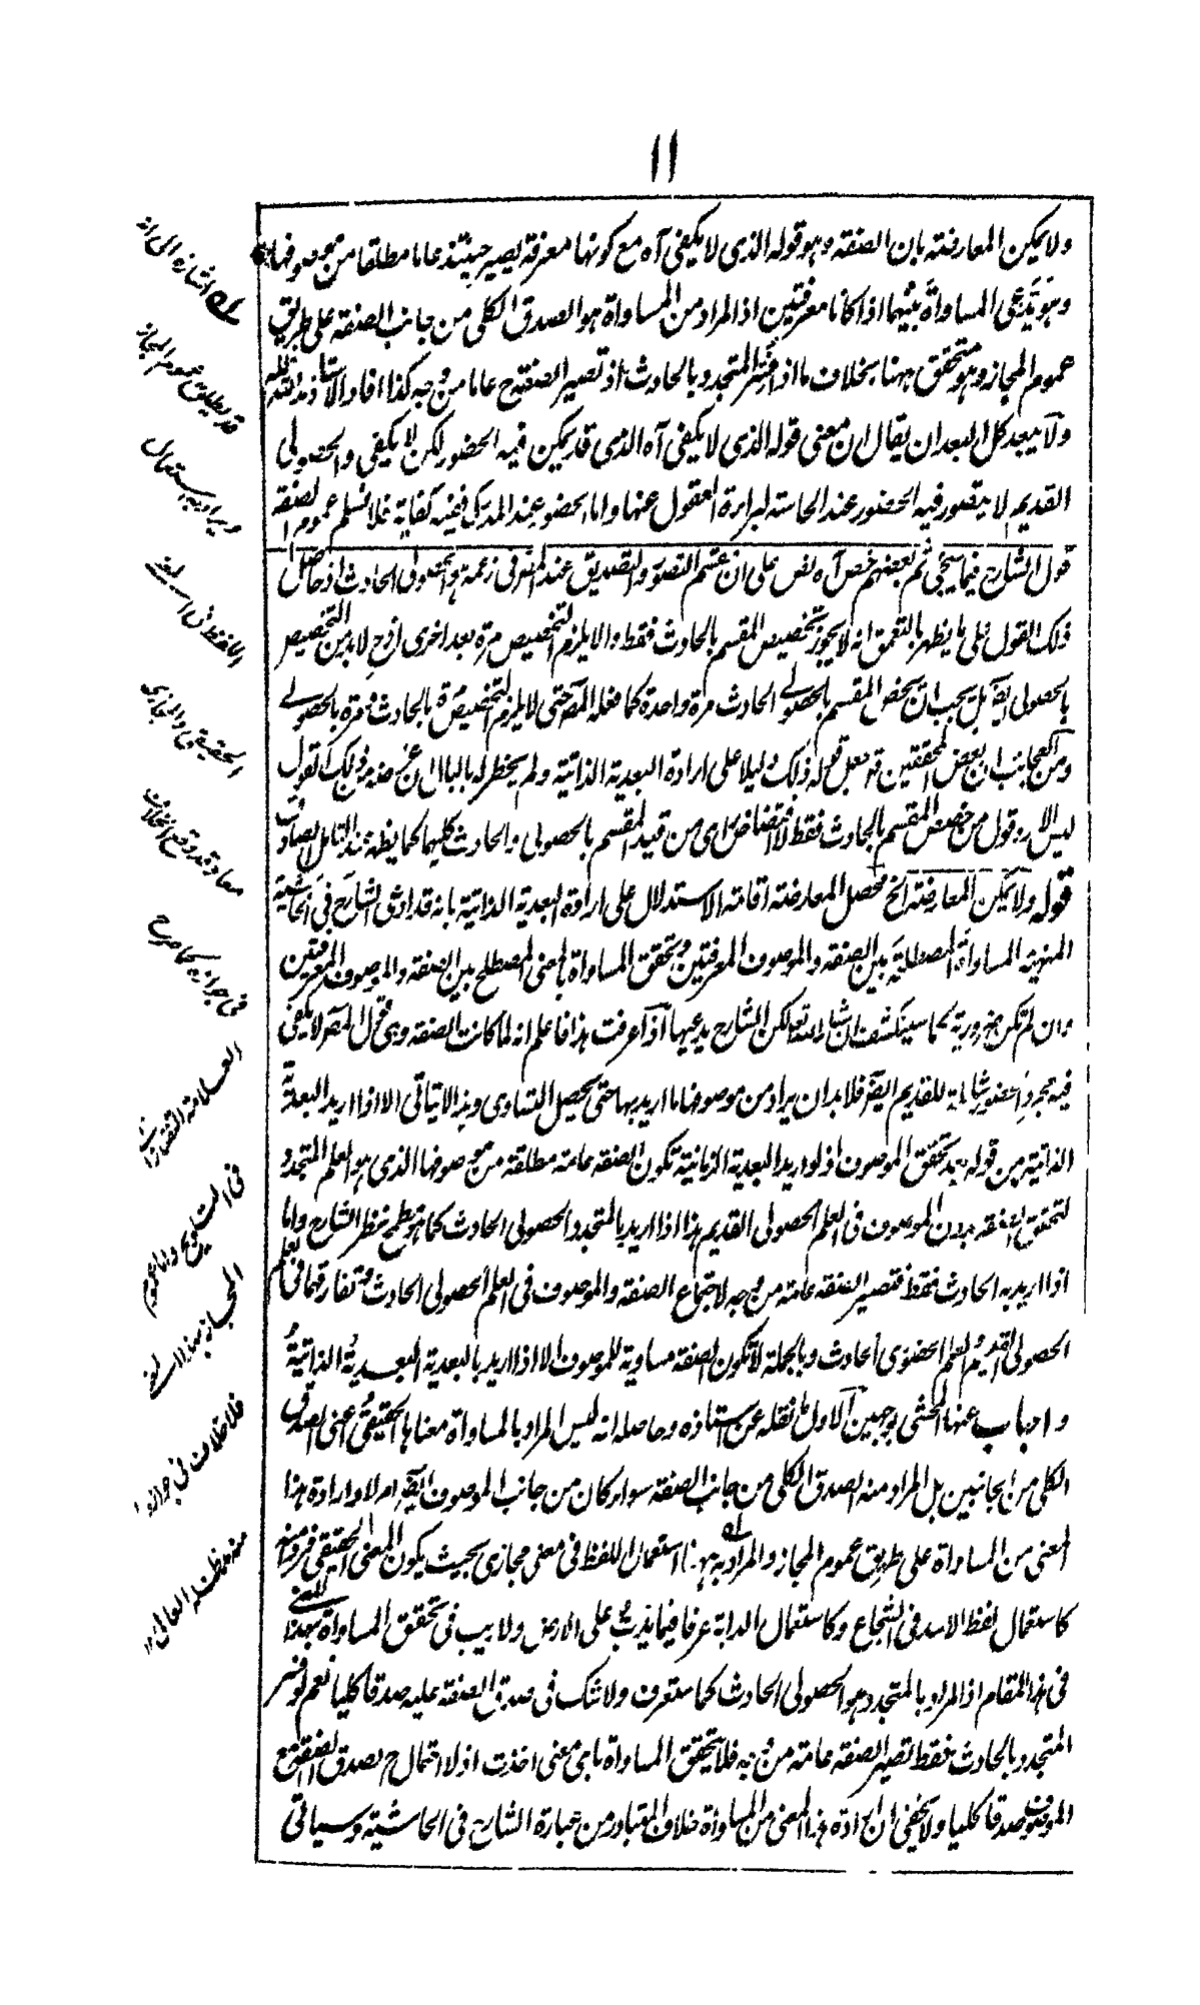 ١١
ولا يمكن المعارضة بان الصفة وهو قوله الذى لا يكفى آه مع كونها معرفة يصير حينئذ عاما مطلقا من موصوفها
وهو يدعى المساواة بينهما اذا كانا معرفتين اذ المراد من المساواة هو الصدق الكلى من جانب الصفة على طريق
عموم المجاز وهو متحقق ههنا بخلاف ما اذا فسر المتجدد بالحادث اذ تصير الصفة ح عاما من وجه كذا افاد الاستاذ مد ظله
ولا يبعد كل البعد ان يقال ان معنى قوله الذى لا يكفى آه الذى قد يمكن فيه الحضور لكن لا يكفى والحصولى
القديم لا يتصور فيه الحضور عند الحاسة لبراءة العقول عنها واما الحضور عند المدرك ففيه كفاية فلا نسلم عموم الصفة
قول الشارح فيما سيجئ ثم بعضهم خص آه نص على ان مقسم التصور والتصديق عند المص فى زعمه هو الحصولى الحادث اذ حاصل
ذلك القول على ما يظهر بالتعمق انه لا يجوز تخصيص المقسم بالحادث فقط والا يلزم التخصيص مرة بعد اخرى اذ ح لا بد من التخصيص
بالحصولى ايضا بل يجب ان يخص المقسم بالحصولى الحادث مرة واحدة كما فعله المص حتى لا يلزم التخصيص مرة بالحادث ومرة بالحصولى
ومن العجائب ان بعض المحققين قد جعل قوله ذلك دليلا على ارادة البعدية الذاتية ولم يخطر له بالبال ان غرضه من ذلك القول
ليس الا رد قول من خصص المقسم بالحادث فقط لا الاعتراض على من قيد المقسم بالحصولى والحادث كليهما كما يظهر عند التأمل الصادق
قوله ولا يمكن المعارضة الخ محصل المعارضة اقامة الاستدلال على ارادة البعدية الذاتية بانه قد ادعى الشارح فى الحاشية
المنهية المساواة المصطلحة بين الصفة والموصوف المعرفتين وتحقق المساواة بالمعنى المصطلح بين الصفة والموصوف المعرفتين
وان لم تكن ضرورية كما سينكشف ان شاء الله تعالى لكن الشارح يدعيها اذا عرفت هذا فاعلم انه لما كانت الصفة وهى قول المص لا يكفى
فيه مجرد الحضور شاملة للقديم ايضا فلا بد ان يراد من موصوفها ما اريد بها حتى يحصل التساوى وهذا لا يتاتى الا اذا اريد البعدية
الذاتية من قوله بعد تحقق الموصوف اذ لو اريد البعدية الزمانية تكون الصفة عامة مطلقة من موصوفها الذى هو العلم المتجدد
لتحقق الصفة بدون الموصوف فى العلم الحصولى القديم هذا اذا اريد بالمتجدد الحصولى الحادث كما هو مطمح نظر الشارح واما
اذا اريد به الحادث فقط فتصير الصفة عامة من وجه لاجتماع الصفة والموصوف فى العلم الحصولى الحادث وتفارقهما فى العلم
الحصولى القديم والعلم الحضورى الحادث وبالجملة لا تكون الصفة مساوية للموصوف الا اذا اريد بالبعدية البعدية الذاتية
واجاب عنها المحشى بوجهين الاول ما نقله عن استاذه وحاصله انه ليس المراد بالمساواة معناها الحقيقى اعنى الصدق
الكلى من الجانبين بل المراد منه الصدق الكلى من جانب الصفة سواء كان من جانب الموصوف ايضا ام لا وارادة هذا
المعنى من المساواة على طريق عموم المجاز والمراد به ههنا استعمال اللفظ فى معنى مجازى بحيث يكون المعنى الحقيقى فردا منه
كاستعمال لفظ الاسد فى الشجاع وكاستعمال الدابة عرفا فيما يدب على الارض ولا ريب فى تحقق المساواة بهذا المعنى
فى هذا المقام اذ المراد بالمتجدد هو الحصولى الحادث كما ستعرف ولا شك فى صدق الصفة عليه صدقا كليا نعم لو فسر
المتجدد بالحادث فقط تصير الصفة عامة من وجه فلا يتحقق المساواة باى معنى اخذت اذ لا احتمال ح لصدق الصفة مع
الموصوف صدقا كليا ولا يخفى ان ارادة هذا المعنى من المساواة خلاف المتبادر من عبارة الشارح فى الحاشية وسياتى
له اشارة الى انه
قد يطلق عموم المجاز
ويراد به استعمال
اللفظ فى
الحقيقى والمجازى
معا وقد وقع الخلاف
فى جوازه كما صرح
العلامة التفتازانى
فى التلويح واما عموم
المجاز بهذا
فلا خلاف فى جوازه
منه مد ظله العالى ١٢